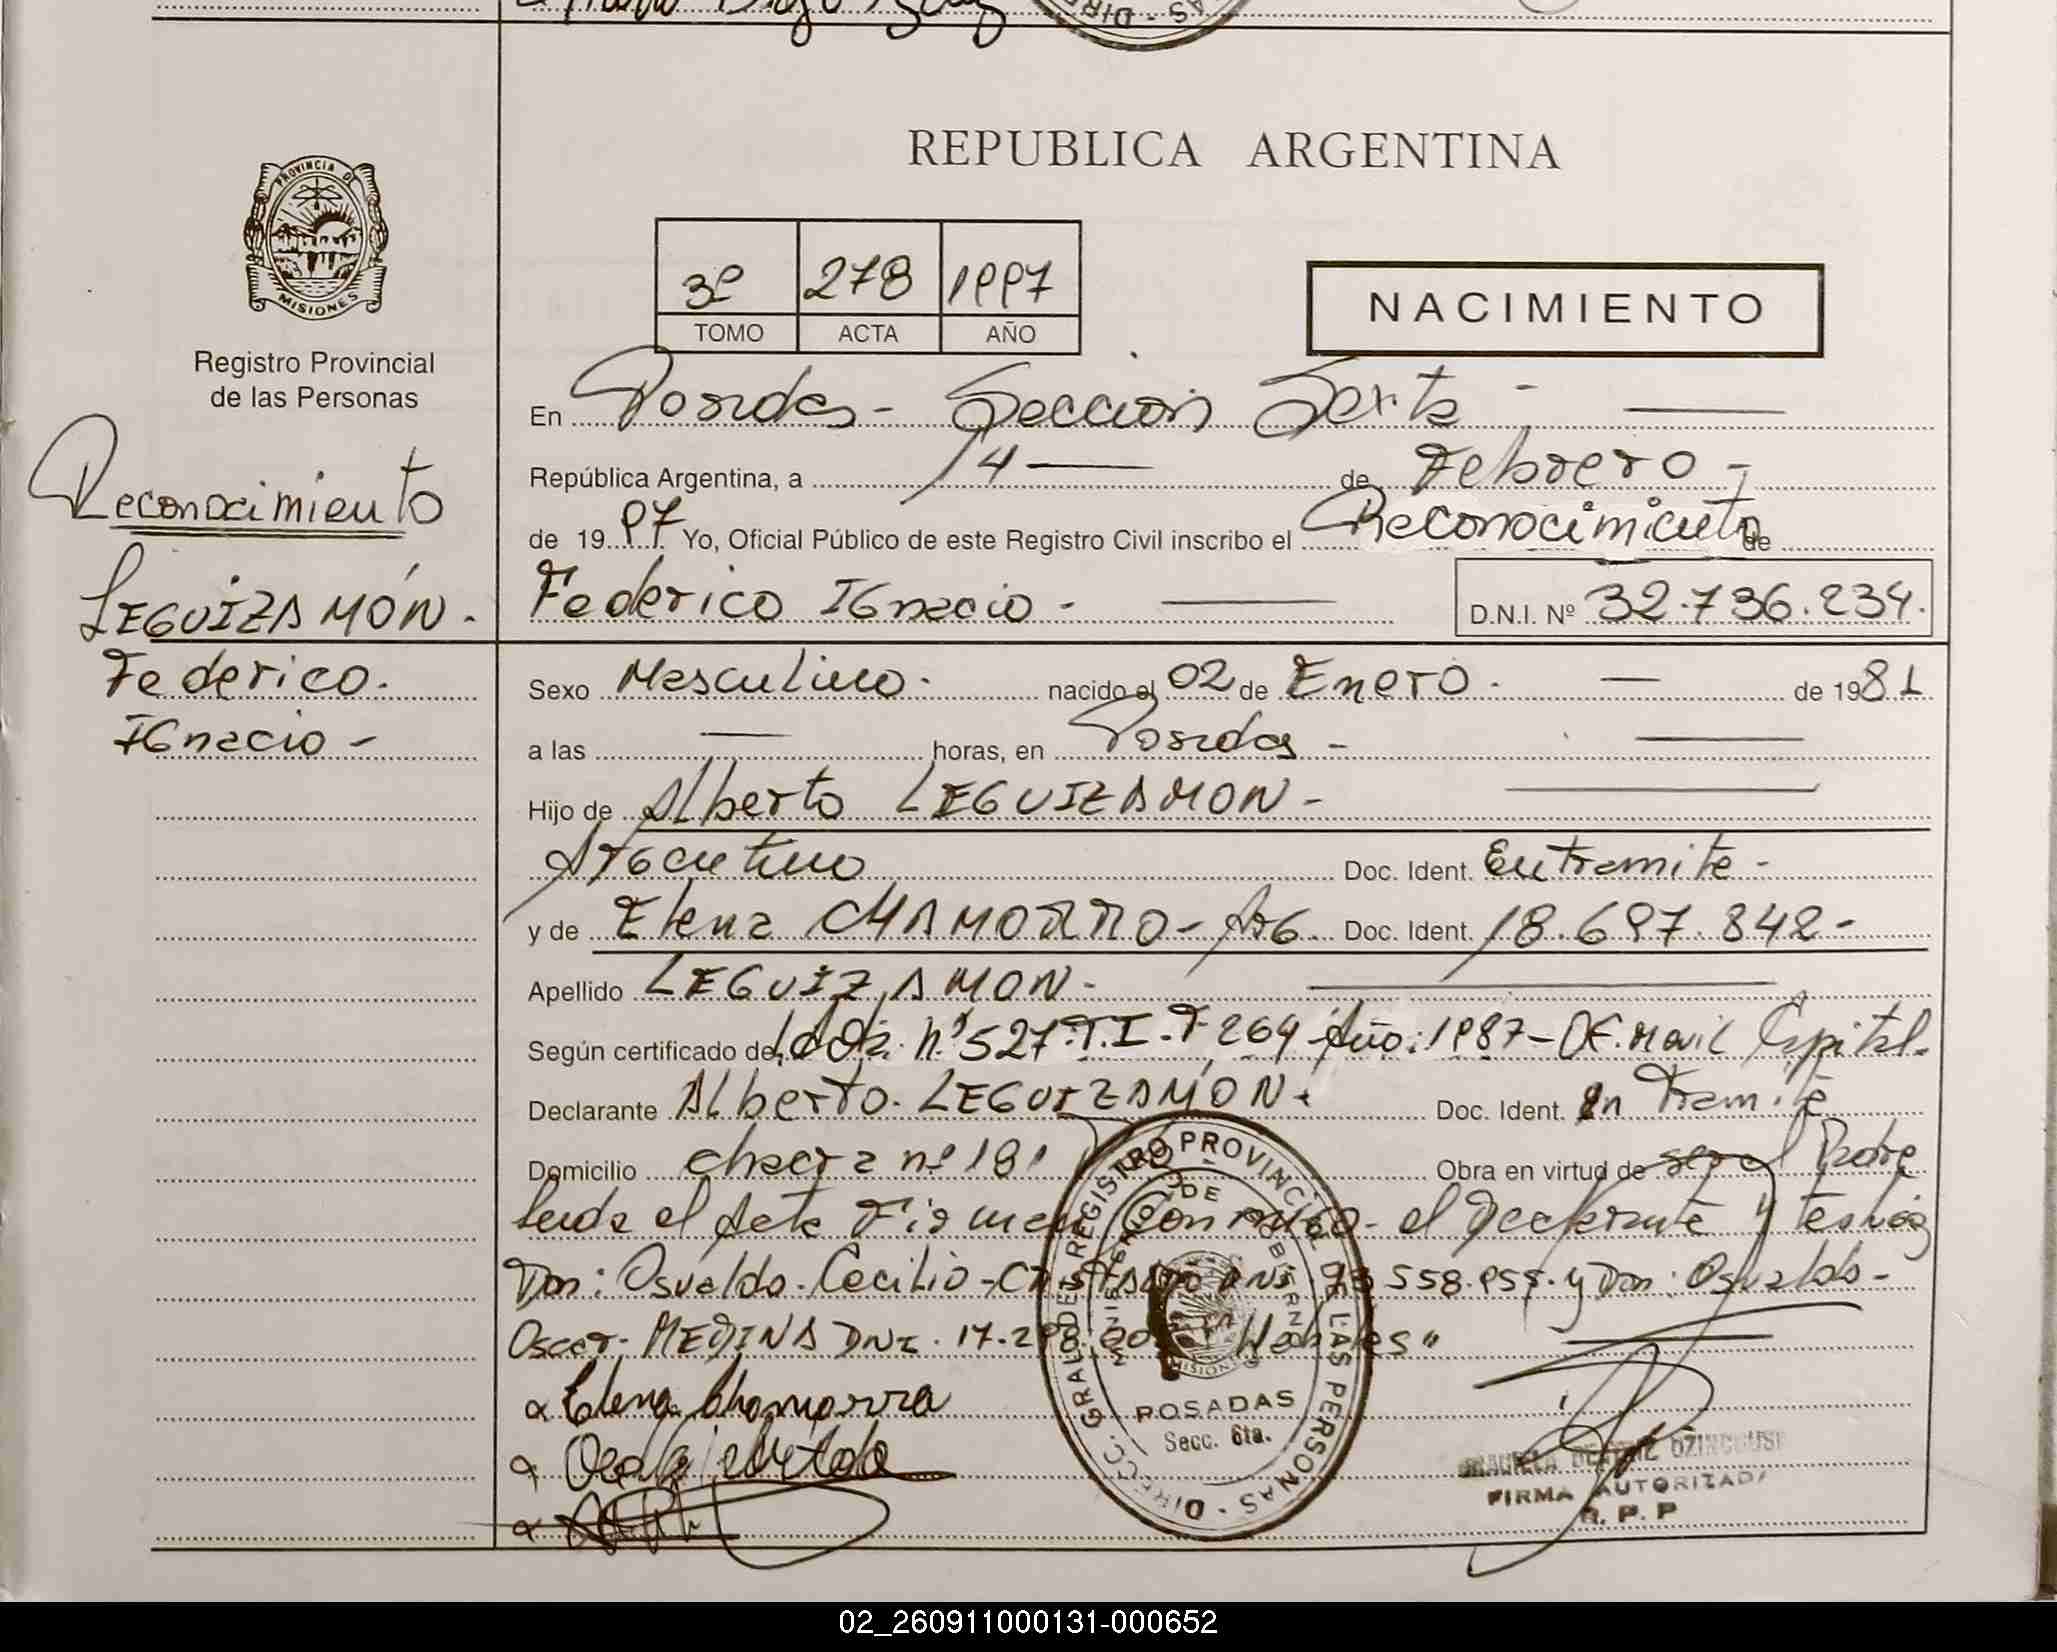 REPUBLICA ARGENTINA
PROVINCIA DE
MISIONES
Registro Provincial
de las Personas
3º 278 1997
TOMO ACTA AÑO
NACIMIENTO
Reconocimiento
LEGUIZAMÓN.
Federico.
IGnacio -
En Posadas - Seccion Sexta -
República Argentina, a 14 de Febrero -
de 1997 Yo, Oficial Público de este Registro Civil inscribo el Reconocimiento de
Federico IGnacio - D.N.I. Nº 32.736.234.
Sexo Masculino. nacido el 02 de Enero. de 1981
a las — horas, en Posadas -
Hijo de Alberto LEGUIZAMON -
Argentino Doc. Ident. En tramite -
y de Elena CHAMORRO - Arg. Doc. Ident. 18.697.842 -
Apellido LEGUIZAMON -
Según certificado de Acta. Nº 527. T.I. F 264 - Año: 1987 - OF. Movil Capital.
Declarante Alberto. LEGUIZAMÓN. Doc. Ident. En Tramite
Domicilio chacra nº 181 Obra en virtud de ser el Padre
Leida el Acta Firman Conmigo - el Declarante y testigos
Don: Osvaldo. Cecilio - DNI 558.955. y Don: Osvaldo -
Oscar - MEDINA DNI. 17.298.
Elena Chamorro
DIRECC. GRAL. DEL REGISTRO PROVINCIAL DE LAS PERSONAS
MINISTERIO DE GOBIERNO
MISIONES
POSADAS
Secc. 6ta.
FIRMA AUTORIZADA
R. P. P
02_260911000131-000652